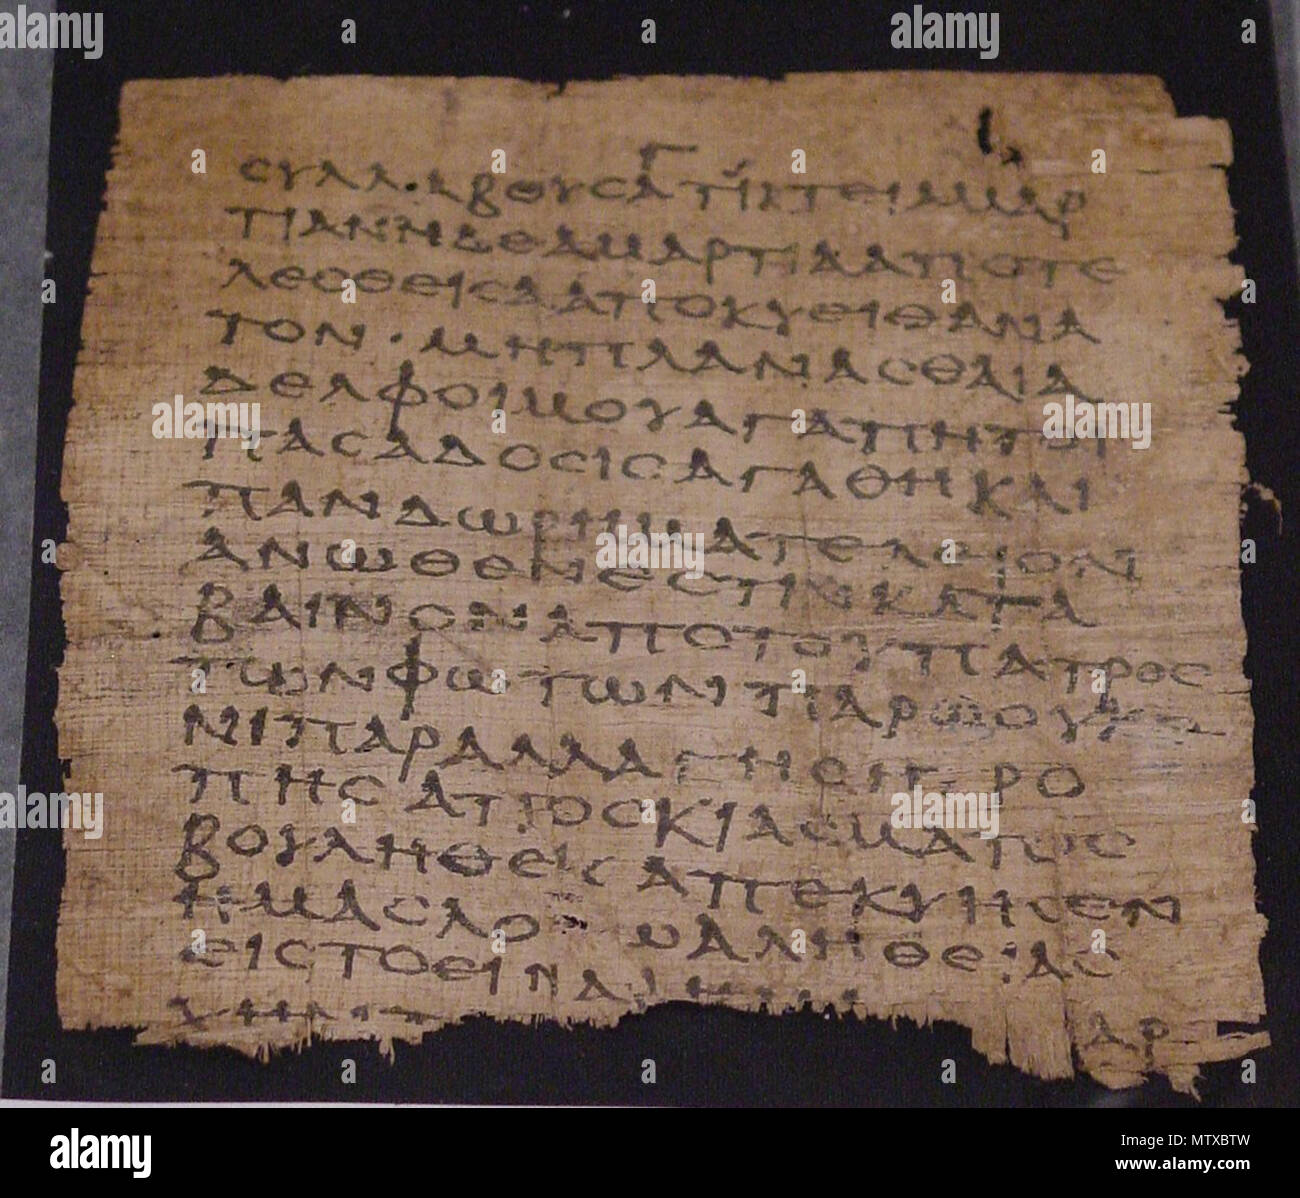 Γ
ϹΥΛΛ·ΑΒΟΥϹΑΤΙΚΤΕΙΑΜΑΡ
ΤΙΑΝΗΔΕΑΜΑΡΤΙΑΑΠΟΤΕ
ΛΕϹΘΕΙϹΑΑΠΟΚΥΕΙΘΑΝΑ
ΤΟΝ·ΜΗΠΛΑΝΑϹΘΑΙΑ
ΔΕΛΦΟΙΜΟΥΑΓΑΠΗΤΟΙ
ΠΑϹΑΔΟϹΙϹΑΓΑΘΗΚΑΙ
ΠΑΝΔΩΡΗΜΑΤΕΛΕΙΟΝ
ΑΝΩΘΕΝΕϹΤΙΝΚΑΤΑ
ΒΑΙΝΟΝΑΠΟΤΟΥΠΑΤΡΟϹ
ΤΩΝΦΩΤΩΝΠΑΡΩΟΥΚΕ
ΝΙΠΑΡΑΛΛΑΓΗϹΗΤΡΟ
ΠΗϹΑΠΟϹΚΙΑϹΜΑΤΟϹ
ΒΟΥΛΗΘΕΙϹΑΠΕΚΥΗϹΕΝ
ΗΜΑϹΛΟΓΩΑΛΗΘΕΙΑϹ
ΕΙϹΤΟΕΙΝΑΙ
ΑΡ
alamy
Image ID: MTXBTW
www.alamy.com